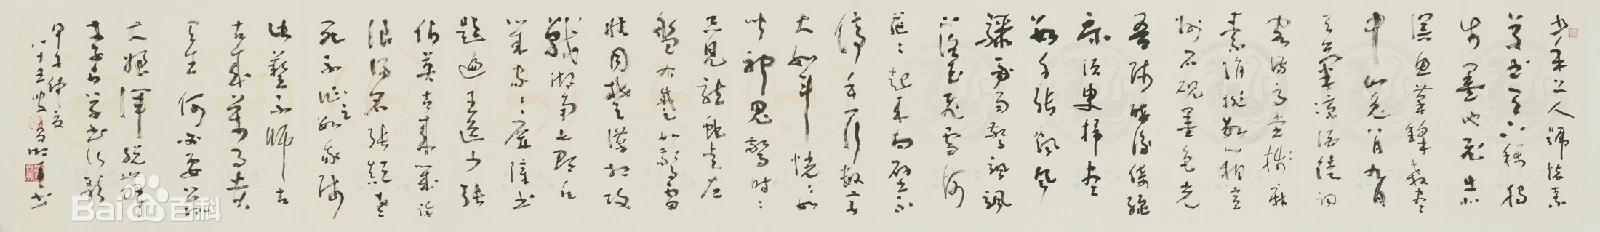 少年上人號懷素
草書天下稱獨
步墨池飛出北
溟魚筆鋒殺盡
中山兔八月九月
天氣涼酒徒詞
客滿高堂箋麻
素絹排數廂宣
州石硯墨色光
吾師醉後倚繩
床須臾掃盡
數千張飄風
驟雨驚颯颯
落花飛雪何
茫茫起來向壁不
停手一行數字
大如斗恍恍如
聞神鬼驚時時
只見龍蛇走左
盤右蹙如驚電
狀同楚漢相攻
戰湖南七郡凡
幾家家家屏障書
題遍王逸少張
伯英古來幾許
浪得名張顛老
死不足數我師
此藝不師古
古來萬事貴
天生何必要公孫
大娘渾脫舞
李白草書歌行
甲午仲夏
八十五叟 書
Baidu百科